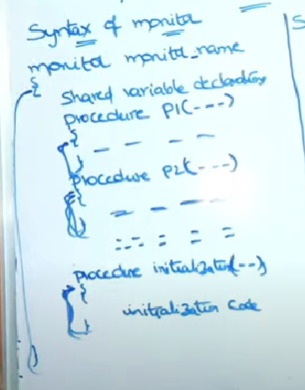 Syntax of monitor
monitor monitor_name
{
Shared variable declarations
procedure P1(----)
{
— — — —
}
procedure P2(----)
{
— — — —
}
procedure initialization(--)
{
initialization code
}
}